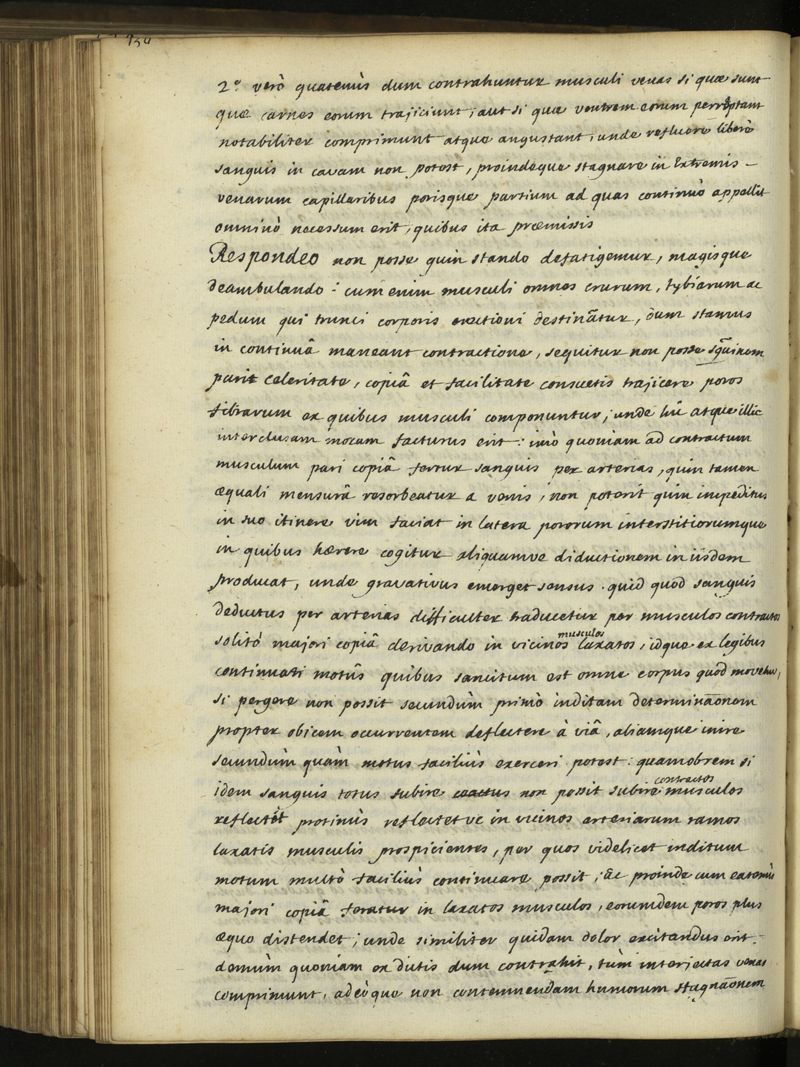 154
2.° verò quatenùs dum contrahuntur musculi venas si quæ sunt
quæ carnes eorum trajiciunt, aut si quæ ventrem eorum perreptant
notabiliter comprimunt atque angustant, unde refluere liberè
sanguis in cavam non potest, proindeque stagnare in Extremis –
venarum capillaribus porisque partium ad quas continuò appellit
omninò necessum erit, quibus ita præmissis
Respondeo non posse quin stando defatigemur, magisque
deambulando : cum enim musculi omnes crurum, tybiarum ac
pedum qui trunci corporis erectioni destinãtur, dum stamus
in continuâ maneant contractione, sequitur non posse sguinem
parit celeritate, copiâ et facilitate consuetis trajicere poros
fibrarum ex quibus musculi componuntur, unde hîc atque illic
interclusam moram facturus erit : imò quoniam ad contractum
musculum pari copiâ fertur sanguis per arterias, quin tamen
æquali mensurâ resorbeatur a venis, non poterit quin impeditus
in suo itinere vim faciat in latera pororum interstitiorumque
in quibus hærere cogitur aliquamve diductionem in iisdem
producat, unde gravativus emerget sensus . quid quod sanguis
deductus per arterias difficulter traducetur per musculos contractos
solitò majori copiâ derivando in vicinos musculos laxatos, idque ex legibus
continuati motûs quibus sancitum est omne corpus quod movetur,
si pergere non possit secundùm primò inditam determinãonem
propter obicem occurrentem deflectere à viâ, aliamque inire
secundùm quam motus faciliùs exerceri potest : quamobrem si
idem sanguis totus subire coactus non possit subire contractos musculos
reflectet protinùs reflectetve in vicinos arteriarum ramos
laxatis musculis prospicientes, per quos videlicet inditum
motum multò faciliùs continuare possit, ac proinde cum eatenùs
majori copiâ feratur in laxatos musculos, eorumdem poros plus
æquo distendet ; unde similiter quidam dolor excitandus erit .
demùm quoniam ex dictis dum contrahit, tùm interjectas venas
comprimunt, adeòque non contemnendam humorum stagnãonem